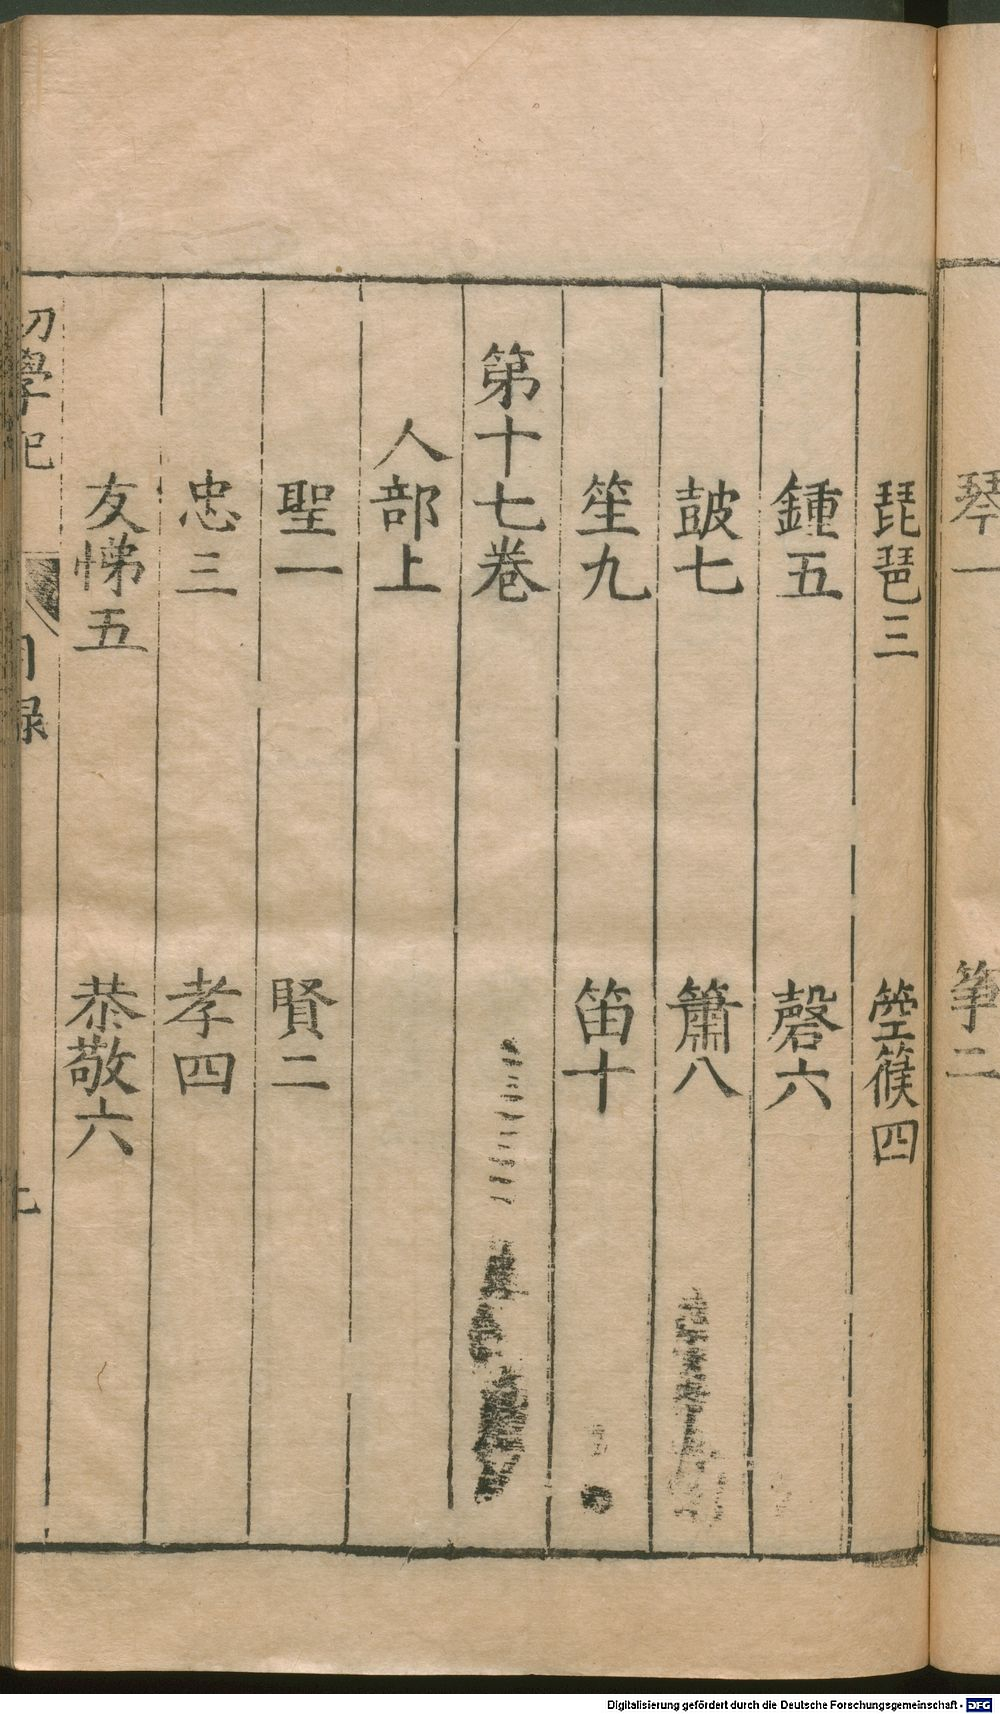 琴一 箏二
琵琶三 箜篌四
鍾五 磬六
皷七 簫八
笙九 笛十
第十七卷
人部上
聖一 賢二
忠三 孝四
友悌五 恭敬六
初學記 目録
Digitalisierung gefördert durch die Deutsche Forschungsgemeinschaft - DFG